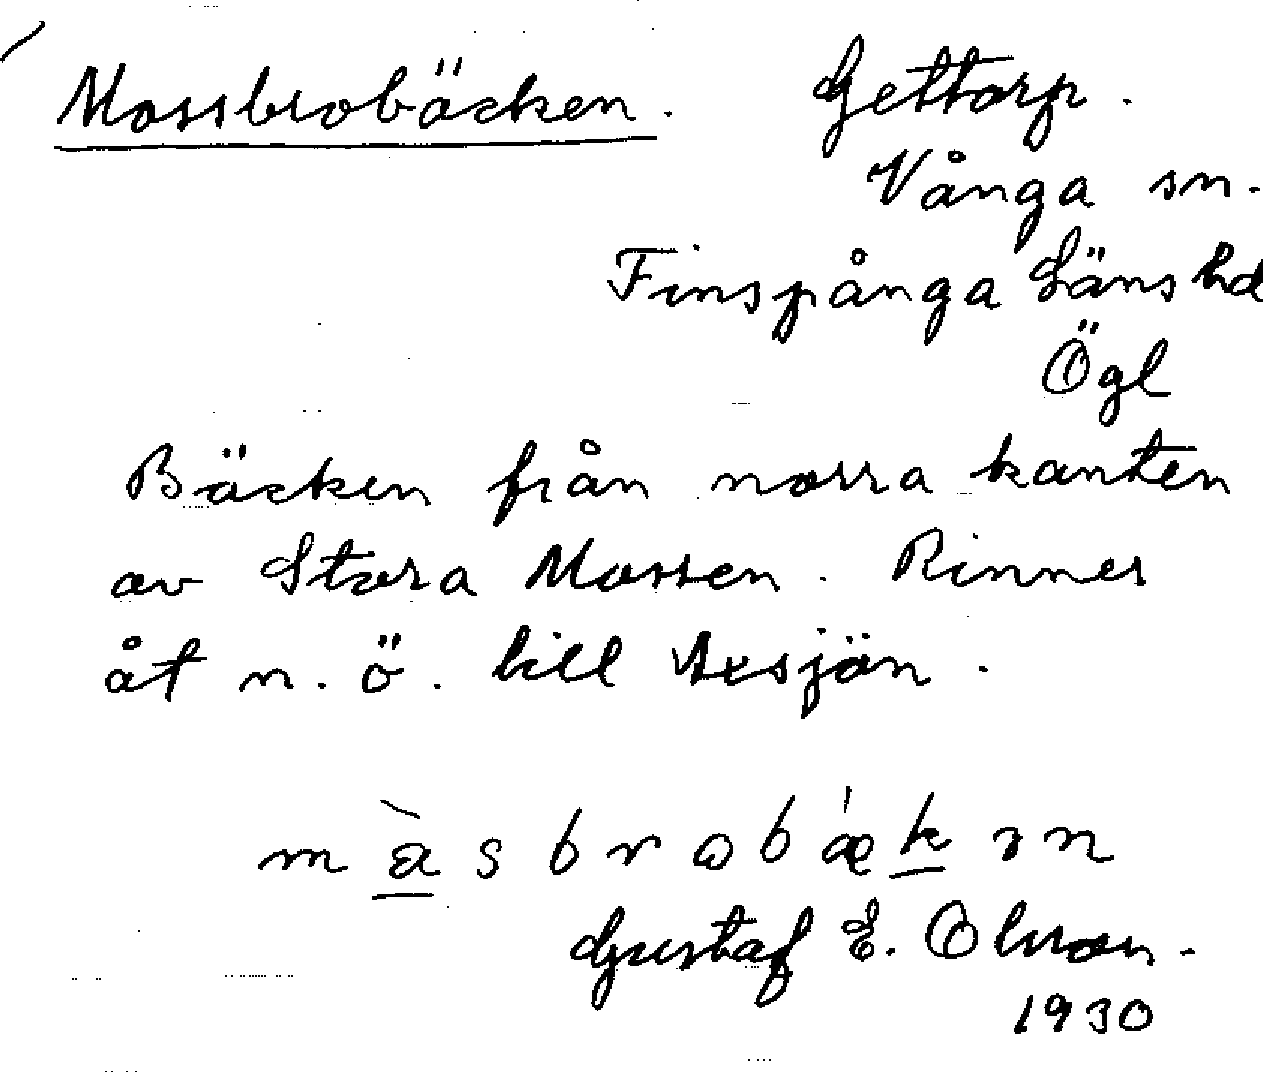 Mossbrobäcken. Gettorp.
Vånga sn.
Finspånga Läns hd
Ögl
Bäcken från norra kanten
av Stora Mossen. Rinner
åt n. ö. till
Gustaf E. Olsson.
1930